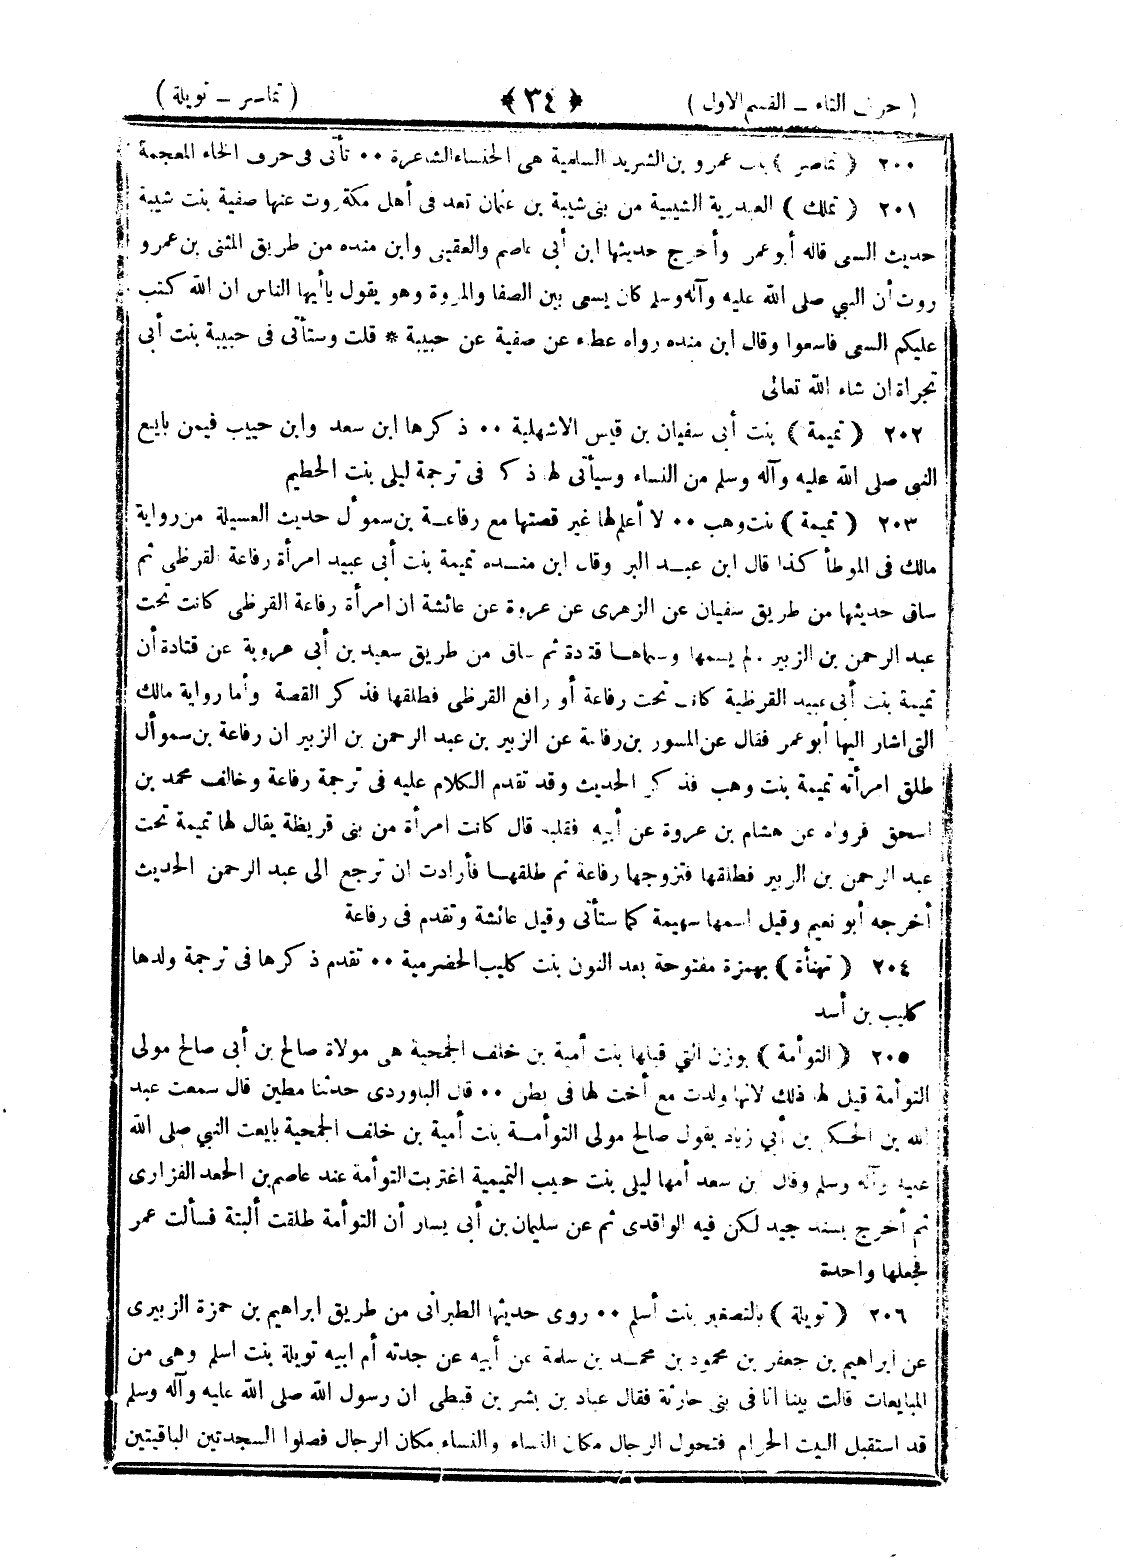 ( حرف التاء – القسم الاول ) ﴿ ٣٤ ﴾ ( تماضر – تويلة )
٢٠٠ ( تماضر ) بنت عمرو بن الشريد السلمية هى الخنساء الشاعرة ٠٠ تأتى فى حرف الخاء المعجمة
٢٠١ ( تملك ) العبدرية الشيبية من بنى شيبة بن عثمان تعد فى أهل مكة روت عنها صفية بنت شيبة
حديث السعى قاله أبو عمر وأخرج حديثها ابن أبى عاصم والعقيلى وابن منده من طريق المثنى بن عمرو
روت أن النبي صلى الله عليه وآله وسلم كان يسعى بين الصفا والمروة وهو يقول ياأيها الناس ان الله كتب
عليكم السعى فاسعوا وقال ابن منده رواه عطاء عن صفية عن حبيبة * قلت وستأتى فى حبيبة بنت أبى
تجراة ان شاء الله تعالى
٢٠٢ ( تميمة ) بنت أبى سفيان بن قيس الاشهلية ٠٠ ذكرها ابن سعد وابن حبيب فيمن بايع
النبى صلى الله عليه وآله وسلم من النساء وسيأتى لها ذكر فى ترجمة ليلى بنت الحطيم
٢٠٣ ( تميمة ) بنت وهب ٠٠ لا أعلم لها غير قصتها مع رفاعة بن سموأل حديث العسيلة من رواية
مالك فى الموطأ كذا قال ابن عبد البر وقال ابن منده تميمة بنت أبى عبيد امرأة رفاعة القرظى ثم
ساق حديثها من طريق سفيان عن الزهرى عن عروة عن عائشة ان امرأة رفاعة القرظى كانت تحت
عبد الرحمن بن الزبير لم يسمها وسماها قتادة ثم ساق من طريق سعيد بن أبى عروبة عن قتادة أن
تميمة بنت أبى عبيد القرظية كانت تحت رفاعة أو رافع القرظى فطلقها فذكر القصة وأما رواية مالك
التى اشار اليها أبو عمر فقال عن المسور بن رفاعة عن الزبير بن عبد الرحمن بن الزبير ان رفاعة بن سموأل
طلق امرأته تميمة بنت وهب فذكر الحديث وقد تقدم الكلام عليه فى ترجمة رفاعة وخالف محمد بن
اسحق فرواه عن هشام بن عروة عن أبيه فقلبه قال كانت امرأة من بنى قريظة يقال لها تميمة تحت
عبد الرحمن بن الزبير فطلقها فتزوجها رفاعة ثم طلقها فأرادت ان ترجع الى عبد الرحمن الحديث
أخرجه أبو نعيم وقيل اسمها سهيمة كما ستأتى وقيل عائشة وتقدم فى رفاعة
٢٠٤ ( تهنأة ) بهمزة مفتوحة بعد النون بنت كليب الحضرمية ٠٠ تقدم ذكرها فى ترجمة ولدها
كليب بن أسد
٢٠٥ ( التوأمة ) بوزن التي قبلها بنت أمية بن خلف الجمحية هى مولاة صالح بن أبى صالح مولى
التوأمة قيل لها ذلك لانها ولدت مع أخت لها فى بطن ٠٠ قال الباوردى حدثنا مطين قال سمعت عبد
الله بن الحكم بن أبي زياد يقول صالح مولى التوأمة بنت أمية بن خلف الجمحية بايعت النبي صلى الله
عليه وآله وسلم وقال ابن سعد أمها ليلى بنت حبيب التميمية اغتربت التوأمة عند عاصم بن الجعد الفزارى
ثم أخرج بسند جيد لكن فيه الواقدى ثم عن سليمان بن أبى يسار أن التوأمة طلقت ألبتة فسألت عمر
فجعلها واحدة
٢٠٦ ( تويلة ) بالتصغير بنت أسلم ٠٠ روى حديثها الطبرانى من طريق ابراهيم بن حمزة الزبيرى
عن ابراهيم بن جعفر بن محمود بن محمد بن سلمة عن أبيه عن جدته أم ابيه تويلة بنت اسلم وهى من
المبايعات قالت بينا انا فى بنى حارثة فقال عباد بن بشر بن قبطى ان رسول الله صلى الله عليه وآله وسلم
قد استقبل البيت الحرام فتحول الرجال مكان النساء والنساء مكان الرجال فصلوا السجدتين الباقيتين